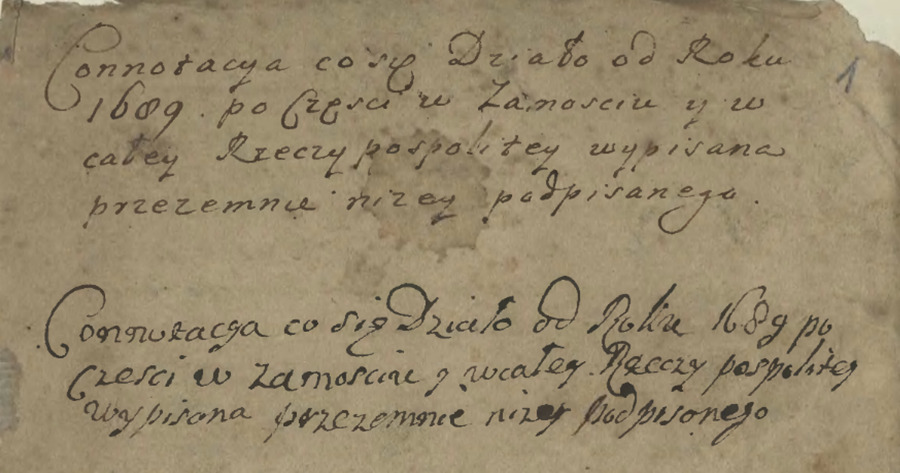 Connotacya co się Działo od Roku
1
1689. po Częsci w Zamosciu y w
całey Rzeczy pospolitey wypisana
przezemnie nizey podpisanego.
Connotacya co się Działo od Roku 1689 po
Czesci w Zamosciu y wcałey Rzeczy pospolitey
wypisana przezemnie nizey podpisonego